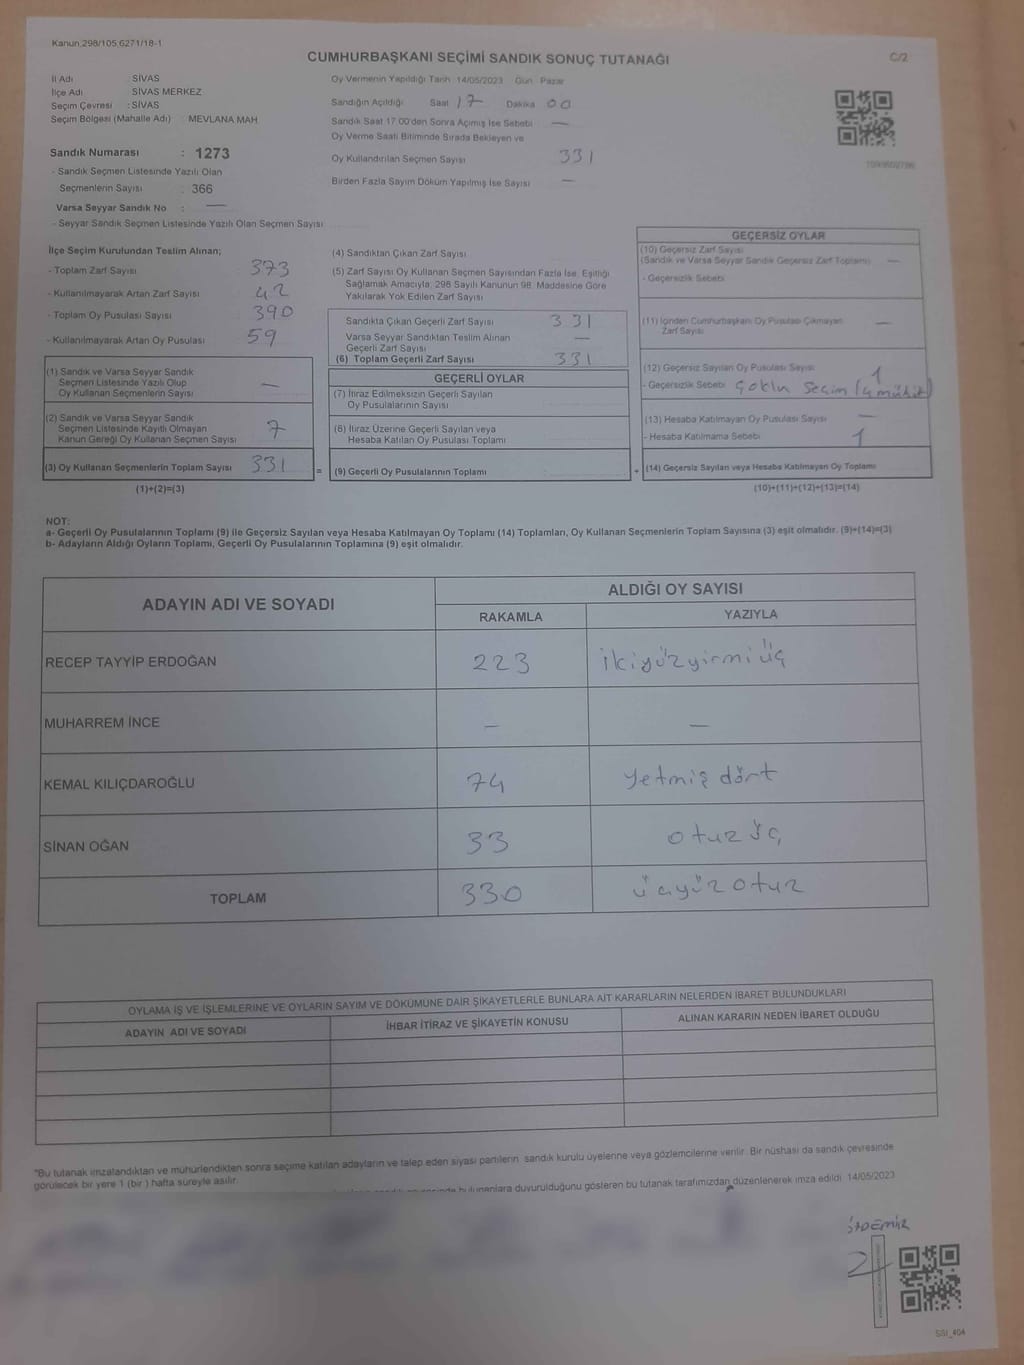 Kanun 298/105,6271/18-1
CUMHURBAŞKANI SEÇİMİ SANDIK SONUÇ TUTANAĞI
C/2
İl Adı SİVAS
İlçe Adı SİVAS MERKEZ
Seçim Çevresi : SİVAS
Seçim Bölgesi (Mahalle Adı) MEVLANA MAH.
Sandık Numarası : 1273
- Sandık Seçmen Listesinde Yazılı Olan
Seçmenlerin Sayısı : 366
Varsa Seyyar Sandık No : —
- Seyyar Sandık Seçmen Listesinde Yazılı Olan Seçmen Sayısı
Oy Vermenin Yapıldığı Tarih 14/05/2023 Gün Pazar
Sandığın Açıldığı Saat 17 Dakika 00
Sandık Saat 17.00'den Sonra Açımış İse Sebebi —
Oy Verme Saati Bitiminde Sırada Bekleyen ve
Oy Kullandırılan Seçmen Sayısı 331
Birden Fazla Sayım Döküm Yapılmış İse Sayısı —
İlçe Seçim Kurulundan Teslim Alınan;
- Toplam Zarf Sayısı 373
- Kullanılmayarak Artan Zarf Sayısı 42
- Toplam Oy Pusulası Sayısı 390
- Kullanılmayarak Artan Oy Pusulası 59
(1) Sandık ve Varsa Seyyar Sandık
Seçmen Listesinde Yazılı Olup
Oy Kullanan Seçmenlerin Sayısı —
(2) Sandık ve Varsa Seyyar Sandık
Seçmen Listesinde Kayıtlı Olmayan
Kanun Gereği Oy Kullanan Seçmen Sayısı 7
(3) Oy Kullanan Seçmenlerin Toplam Sayısı 331 =
(1)+(2)=(3)
(4) Sandıktan Çıkan Zarf Sayısı
(5) Zarf Sayısı Oy Kullanan Seçmen Sayısından Fazla İse, Eşitliği
Sağlamak Amacıyla; 298 Sayılı Kanunun 98. Maddesine Göre
Yakılarak Yok Edilen Zarf Sayısı
Sandıkta Çıkan Geçerli Zarf Sayısı 331
Varsa Seyyar Sandıktan Teslim Alınan
Geçerli Zarf Sayısı —
(6) Toplam Geçerli Zarf Sayısı 331
GEÇERLİ OYLAR
(7) İtiraz Edilmeksizin Geçerli Sayılan
Oy Pusulalarının Sayısı
(8) İtiraz Üzerine Geçerli Sayılan veya
Hesaba Katılan Oy Pusulası Toplamı
(9) Geçerli Oy Pusulalarının Toplamı +
GEÇERSİZ OYLAR
(10) Geçersiz Zarf Sayısı
(Sandık ve Varsa Seyyar Sandık Geçersiz Zarf Toplamı) —
- Geçersizlik Sebebi
(11) İçinden Cumhurbaşkanı Oy Pusulası Çıkmayan
Zarf Sayısı —
(12) Geçersiz Sayılan Oy Pusulası Sayısı 1
- Geçersizlik Sebebi Çoklu Seçim
(13) Hesaba Katılmayan Oy Pusulası Sayısı —
- Hesaba Katılmama Sebebi 1
(14) Geçersiz Sayılan veya Hesaba Katılmayan Oy Toplamı
(10)+(11)+(12)+(13)=(14)
NOT:
a- Geçerli Oy Pusulalarının Toplamı (9) ile Geçersiz Sayılan veya Hesaba Katılmayan Oy Toplamı (14) Toplamları, Oy Kullanan Seçmenlerin Toplam Sayısına (3) eşit olmalıdır. (9)+(14)=(3)
b- Adayların Aldığı Oyların Toplamı, Geçerli Oy Pusulalarının Toplamına (9) eşit olmalıdır.
ADAYIN ADI VE SOYADI ALDIĞI OY SAYISI
RAKAMLA YAZIYLA
RECEP TAYYİP ERDOĞAN 223 ikiyüzyirmiüç
MUHARREM İNCE — —
KEMAL KILIÇDAROĞLU 74 yetmiş dört
SİNAN OĞAN 33 otuz üç
TOPLAM 330 üçyüz otuz
OYLAMA İŞ VE İŞLEMLERİNE VE OYLARIN SAYIM VE DÖKÜMÜNE DAİR ŞİKAYETLERLE BUNLARA AİT KARARLARIN NELERDEN İBARET BULUNDUKLARI
ADAYIN ADI VE SOYADI İHBAR İTİRAZ VE ŞİKAYETİN KONUSU ALINAN KARARIN NEDEN İBARET OLDUĞU
"Bu tutanak imzalandıktan ve mühürlendikten sonra seçime katılan adayların ve talep eden siyasi partilerin sandık kurulu üyelerine veya gözlemcilerine verilir. Bir nüshası da sandık çevresinde
görülecek bir yere 1 (bir ) hafta süreyle asılır.
bulunanlara duyurulduğunu gösteren bu tutanak tarafımızdan düzenlenerek imza edildi. 14/05/2023
SSİ_404